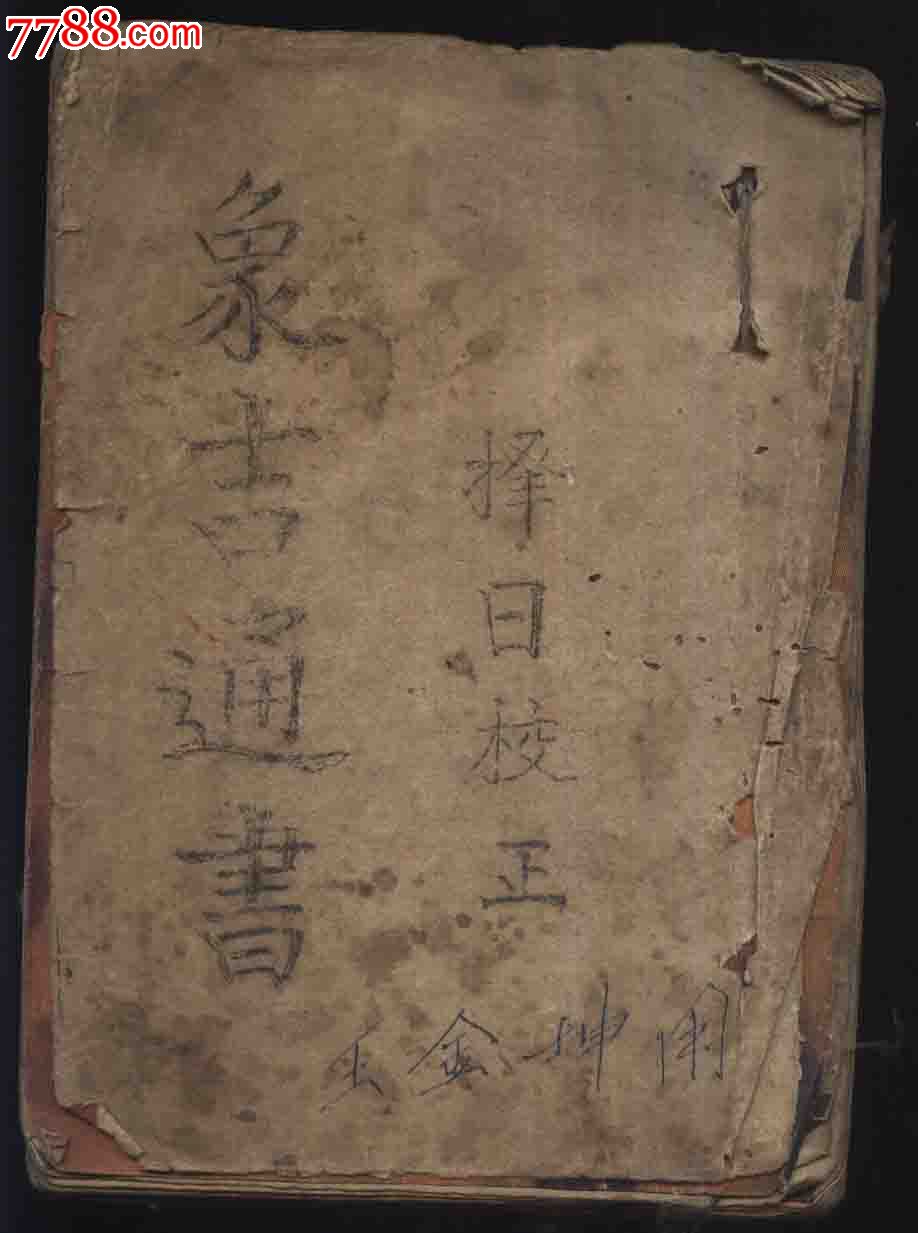 7788.com
择日校正
象吉通書
王金坤用